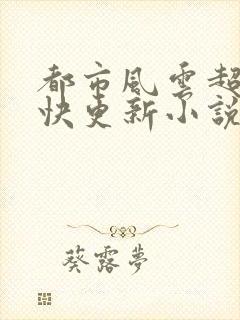 都市風雲超
快更新小說
葵露夢